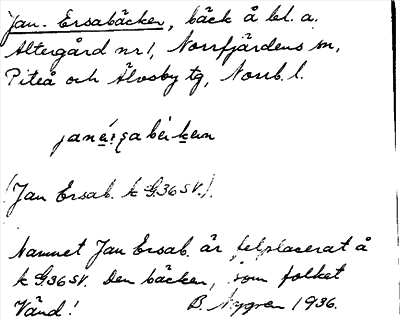 Jan-Ersabäcken, bäck å bl. a.
Altergård nr 1, Norrfjärdens sn,
Piteå och Älvsby tg, Norrb. l.
(Jan Ersab. k G.36 SV.).
Namnet Jan Ersab. är felplacerat å
k G.36 SV. Den bäcken, som folket
Vänd! B. Nygren 1936.